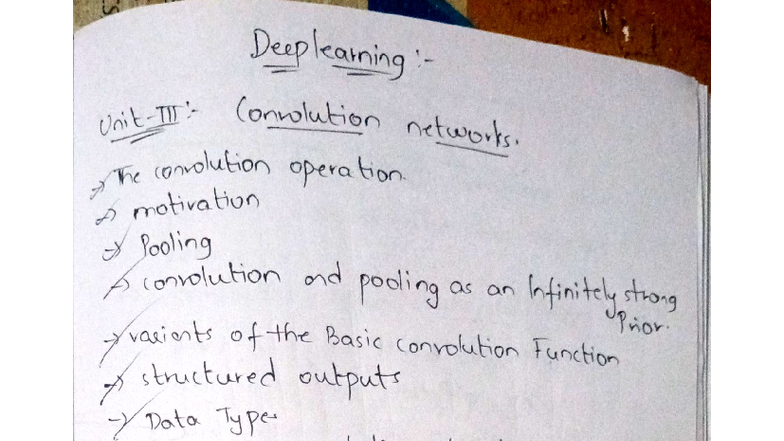 Deep learning :-
Unit-III :- Convolution networks.
→ The convolution operation.
→ motivation
→ Pooling
→ convolution and pooling as an Infinitely strong
Prior.
→ varients of the Basic convolution Function
→ structured outputs
→ Data Types